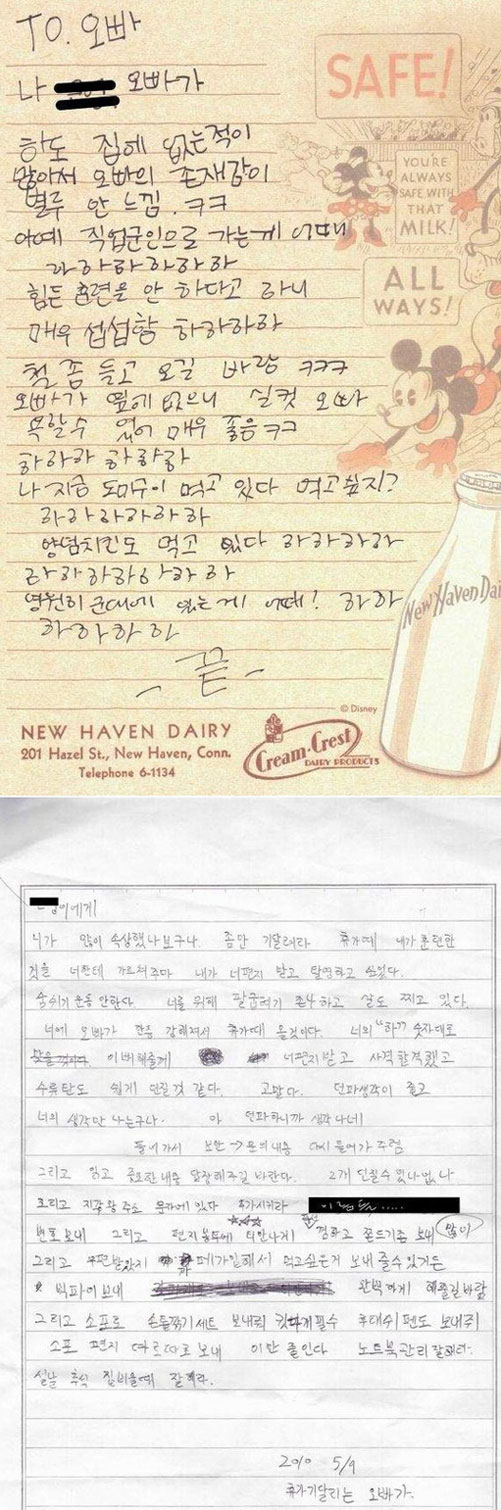 TO. 오빠
나 오빠가
하도 집에 없는적이
많아서 오빠의 존재감이
별루 안 느낌. ㅋㅋ
아예 직업군인으로 가는게 어때
하하하하하하
힘든 훈련을 안 하다고 하니
매우 섭섭함 하하하하
철 좀 들고 오길 바람 ㅋㅋㅋ
오빠가 옆에 없으니 실컷 오빠
욕할수 있어 매우 좋음ㅋㅋ
하하하 하하하
나 지금 도미누이 먹고 있다 먹고싶지?
하하하하하하
양념치킨도 먹고 있다 하하하하
하하하하하하하
영원히 군대에 있는 게 어때! 하하
하하하하
- 끝 -
SAFE!
YOU'RE
ALWAYS
SAFE WITH
THAT
MILK!
ALL
WAYS!
New Haven Dai
© Disney
NEW HAVEN DAIRY
201 Hazel St., New Haven, Conn.
Telephone 6-1134
Cream Crest
DAIRY PRODUCTS
이에게
니가 많이 속상했나보구나. 좀만 기달려라 휴가때 내가 훈련한
것을 너한테 가르쳐주마 내가 너편지 받고 탈영하고 싶었다.
숨쉬기 운동 안한다. 너를 위해 팔굽혀기 존나 하고 살도 찌고 있다.
너에 오빠가 한층 강해져서 휴가때 올것이다. 너의 "하" 숫자대로
이뻐해줄게 너편지 받고 사격합격했고
수류탄도 쉽게 던질것 같다. 고맙다. 던파생각이 줄고
너의 생각만 나는구나. 아 던파하니까 생각나네
들어가서 보안→문의내용 다시 들어가 주렴
그리고 읽고 중요한내용 답장해주길 바란다. 2개 던질수있나없나
그리고 지갑 주소 문자에 있다 휴가시켜라
번호 보내 그리고 편지봉투에 티안나게 보내 많이
그리고 받았지 해서 먹고싶은거 보내 줄수있거든
빅파이보내 완벽하게 해줄길바람
그리고 소포로 손톱깎기세트 보내줘 필수 펜도 보내줘
소포 편지 따로따로 보내 이만 줄인다 노트북관리 잘해라.
설날 추석 집비울때 잘해라.
2010 5/9
휴가기달리는 오빠가.